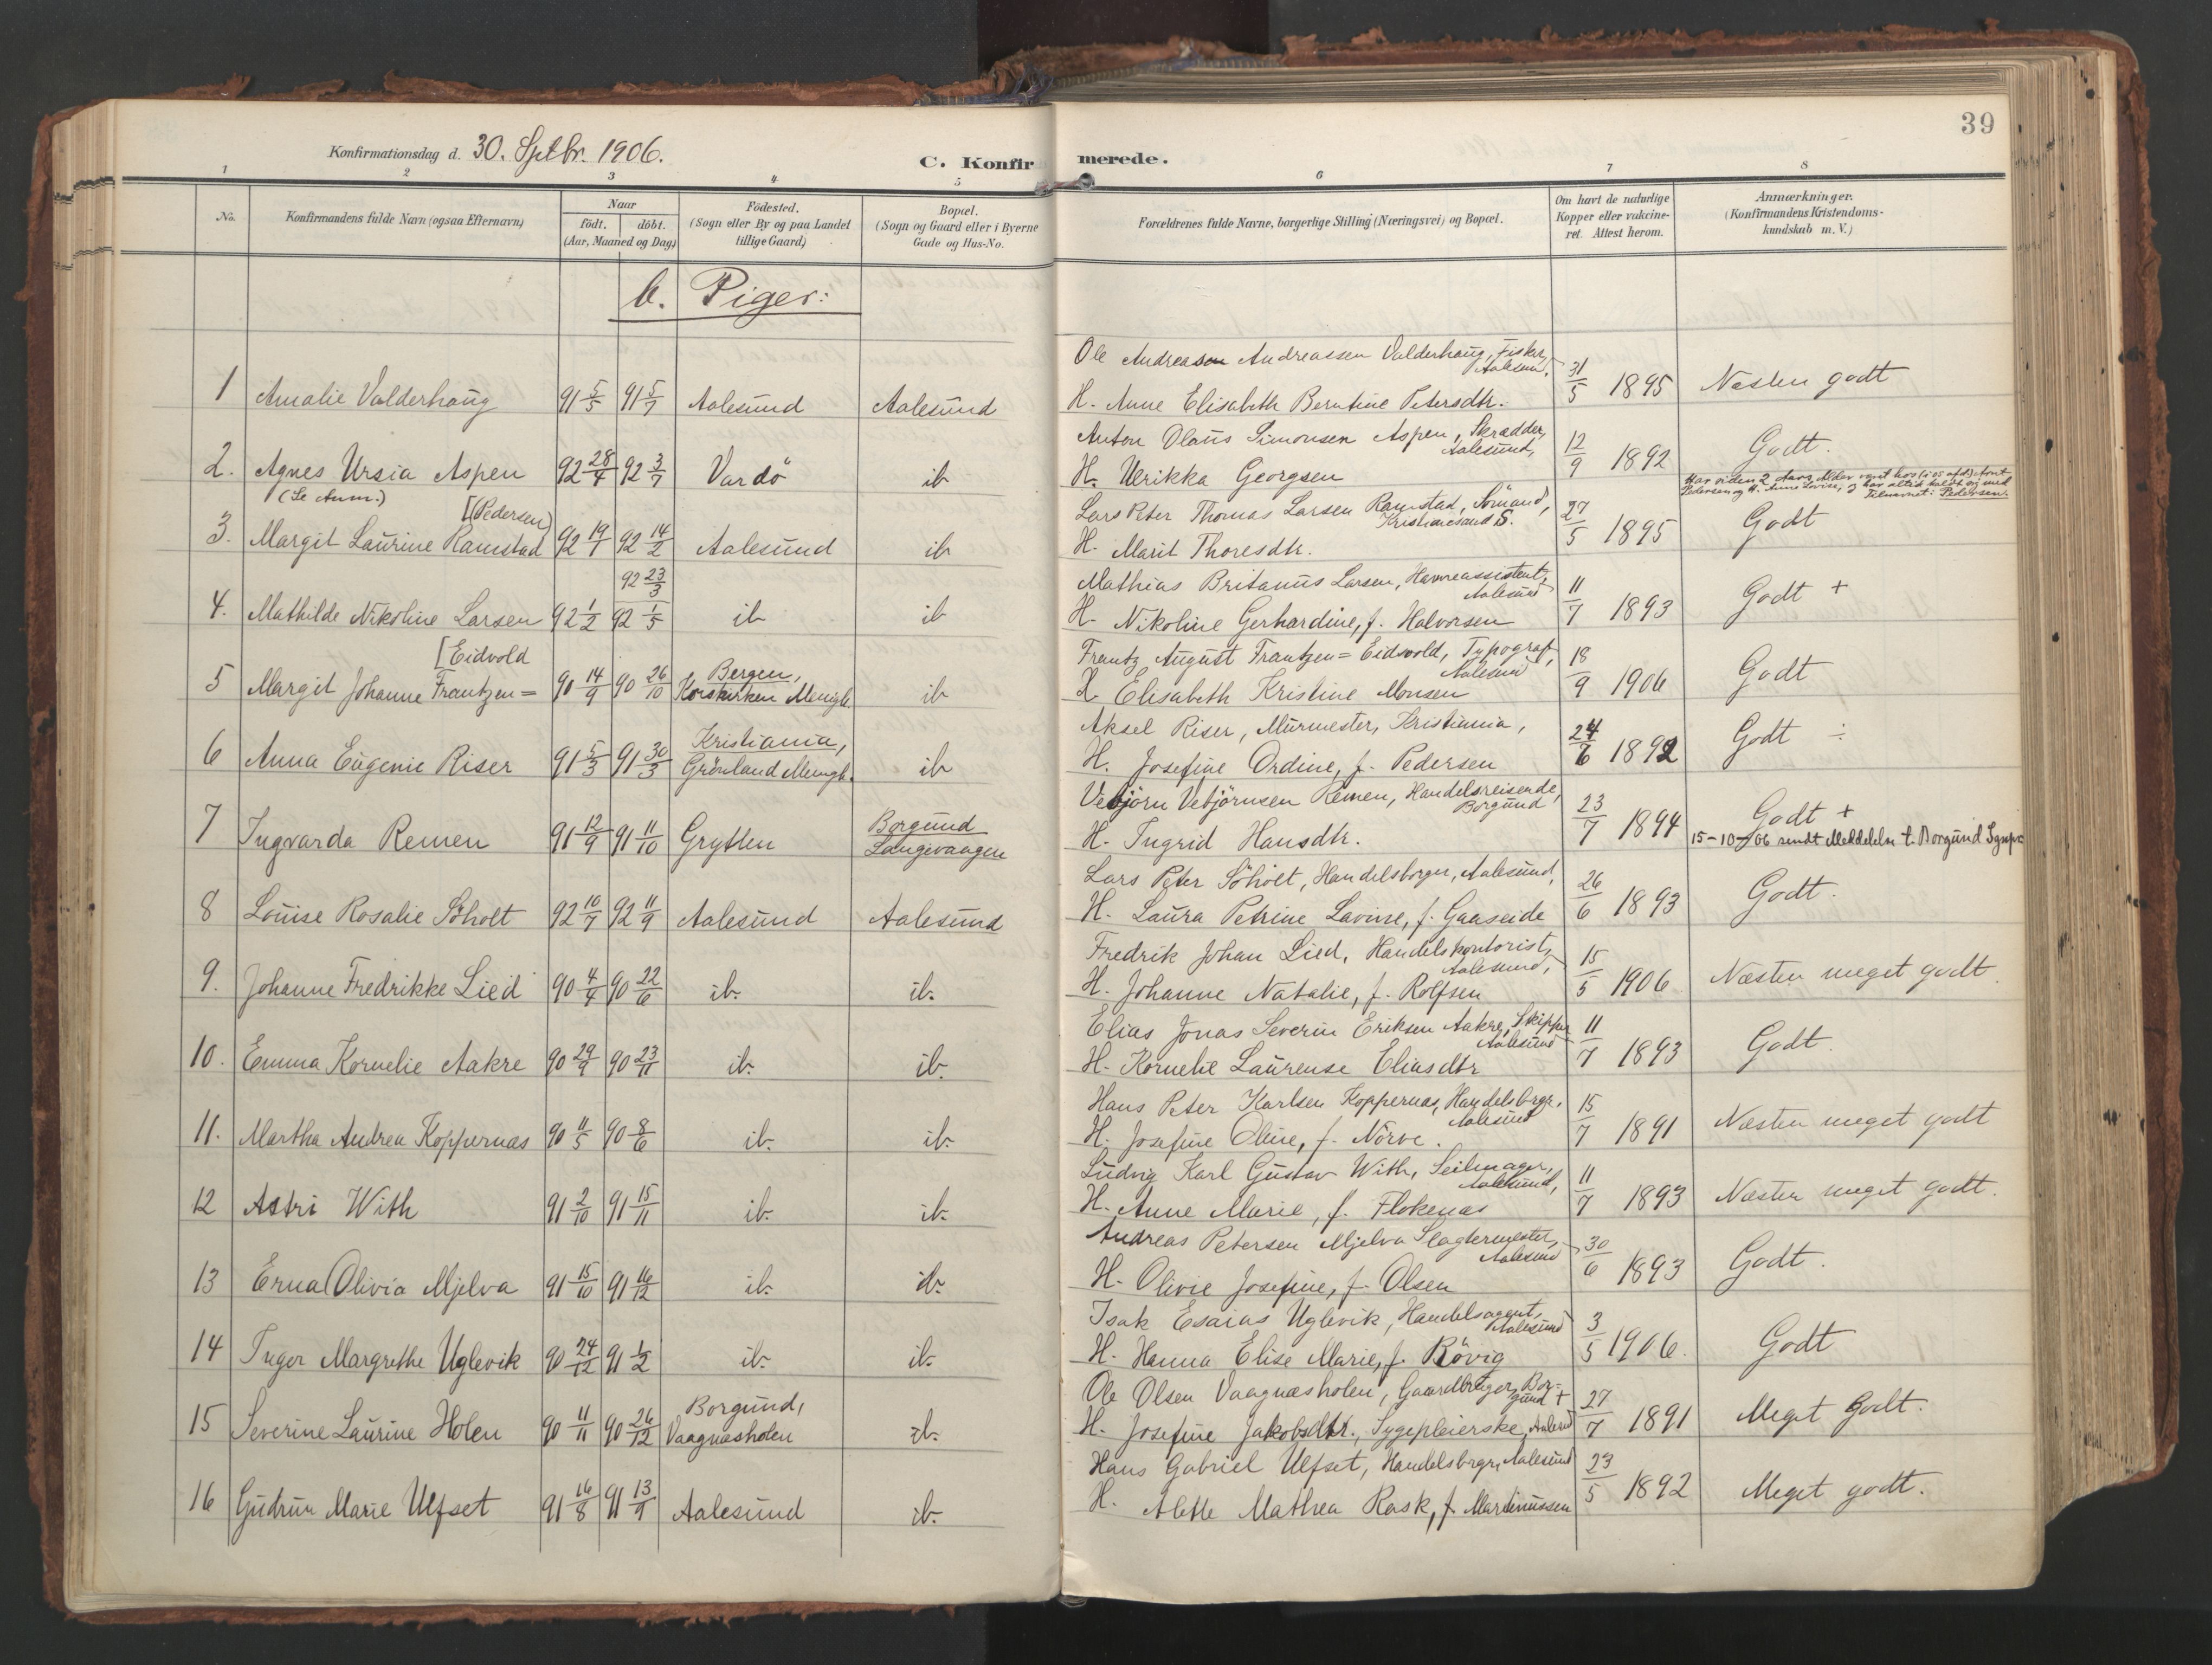 39
Konfirmationsdag d. 30. Septbr. 1906.
C. Konfirmerede.
1 2 3 4 5 6 7 8
No.
Konfirmandens fulde Navn (ogsaa Efternavn)
Naar
födt. döbt.
(Aar, Maaned og Dag)
Födested.
(Sogn eller By og paa Landet
tillige Gaard)
Bopæl.
(Sogn og Gaard eller i Byerne
Gade og Hus-No.
Forældrenes fulde Navne, borgerlige Stilling (Næringsvei) og Bopæl.
Om havt de naturlige
Kopper eller vakcine-
ret. Attest herom.
Anmærkninger.
(Konfirmandens Kristendoms-
kundskab m. V.)
b. Piger:
Ole Andreasen Andreassen Valderhaug, Fisker,
Aalesund,
1 Amalie Valderhaug 91 5/5 91 5/7 Aalesund Aalesund H. Anne Elisabeth Berntine Petersdtr. 31/5 1895 Næsten godt
Anton Olaus Simonsen Aspen, Skrædder,
Aalesund,
2. Agnes Ursia Aspen 92 28/4 92 3/7 Vardö ib H. Ulrikka Georgsen 12/9 1892 Godt.
(Se Anm:)
Har siden 2 Aars Alder været hos Arnt
Pedersen og H. Anne Lovise, og har altid kaldt sig med
Tilnavnet: Pedersen.
[(Pedersen)
Lars Peter Thomas Larsen Ramstad, Sömand,
Kristianssund S.
3. Margit Laurine Ramstad 92 19/1 92 14/2 Aalesund ib H. Marit Thoresdtr. 27/5 1895 Godt
92 23/3
Mathias Britanus Larsen, Havneassistent,
Aalesund
4. Mathilde Nikoline Larsen 92 1/2 92 1/5 ib ib H. Nikoline Gerhardine, f. Halvorsen 11/7 1893 Godt +
[Eidvold
Frantz August Frantzen=Eidsvold, Typograf,
Aalesund
5 Margit Johanne Frantzen= 90 14/9 90 26/10 Bergen, Korskirken Menigh. ib H. Elisabeth Kristine Monsen 18/9 1906 Godt
Aksel Riser, Murmester, Kristiania,
6 Anna Eugenie Riser 91 5/3 91 30/3 Kristiania, Grönland Menigh. ib H. Josefine Ordine, f. Pedersen 24/6 1892 Godt ÷
Vebjörn Vebjörnsen Remen, Handelsreisende,
Borgund
7 Ingvarda Remen 91 12/9 91 11/10 Grytten Borgund Langevaagen H. Ingrid Hansdtr. 23/7 1894 Godt +
15-10-06 sendt Meddelelse t. Borgund Sgnpr.
Lars Peter Söholt, Handelsborger, Aalesund,
8 Louise Rosalie Söholt 92 10/7 92 11/9 Aalesund Aalesund H. Laura Petrine Lavine, f. Gaaseide 26/6 1893 Godt.
Fredrik Johan Lied, Handelskontorist,
Aalesund,
9. Johanne Fredrikke Lied 90 4/4 90 22/6 ib. ib. H. Johanne Natalie, f. Rolfsen 15/5 1906 Næsten meget godt
Elias Jonas Severin Eriksen Aakre, Skipper
Aalesund
10. Emma Kornelie Aakre 90 29/9 90 23/11 ib. ib. H. Kornelie Laurense Eliasdtr 11/7 1893 Godt
Hans Peter Karlsen Koppernæs, Handelsbrgr.
Aalesund
11. Martha Andrea Koppernæs 90 11/5 90 8/6 ib. ib. H. Josefine Oline, f. Nörve. 15/7 1891 Næsten meget godt
Ludvig Karl Gustav With, Seilmager,
Aalesund,
12 Astri With 91 2/10 91 15/11 ib. ib. H. Anne Marie, f. Flokenæs 11/7 1893 Næsten meget godt.
Andreas Petersen Mjelva Slagtermester,
Aalesund
13 Erna Olivia Mjelva 91 15/10 91 16/12 ib. ib. H. Olivie Josefine, f. Olsen 30/6 1893 Godt.
Isak Esaias Uglevik, Handelsagent,
Aalesund
14 Inger Margrethe Uglevik 90 24/12 91 1/2 ib. ib. H. Hanna Elise Marie, f. Rövig 3/5 1906. Godt
Ole Olsen Vaagnæsholen, Gaardbruger, Bor-
gund +
15 Severine Laurine Holen 90 11/11 90 26/12 Borgund, Vaagnæsholen ib. H. Josefine Jakobsdtr., Sygepleierske, Aalesund 27/7 1891 Meget Godt.
Hans Gabriel Ulfset, Handelsbrgr, Aalesund
16 Gudrun Marie Ulfset 91 16/8 91 13/9 Aalesund ib. H. Alette Mathea Rask, f. Martinussen 23/5 1892 Meget godt.